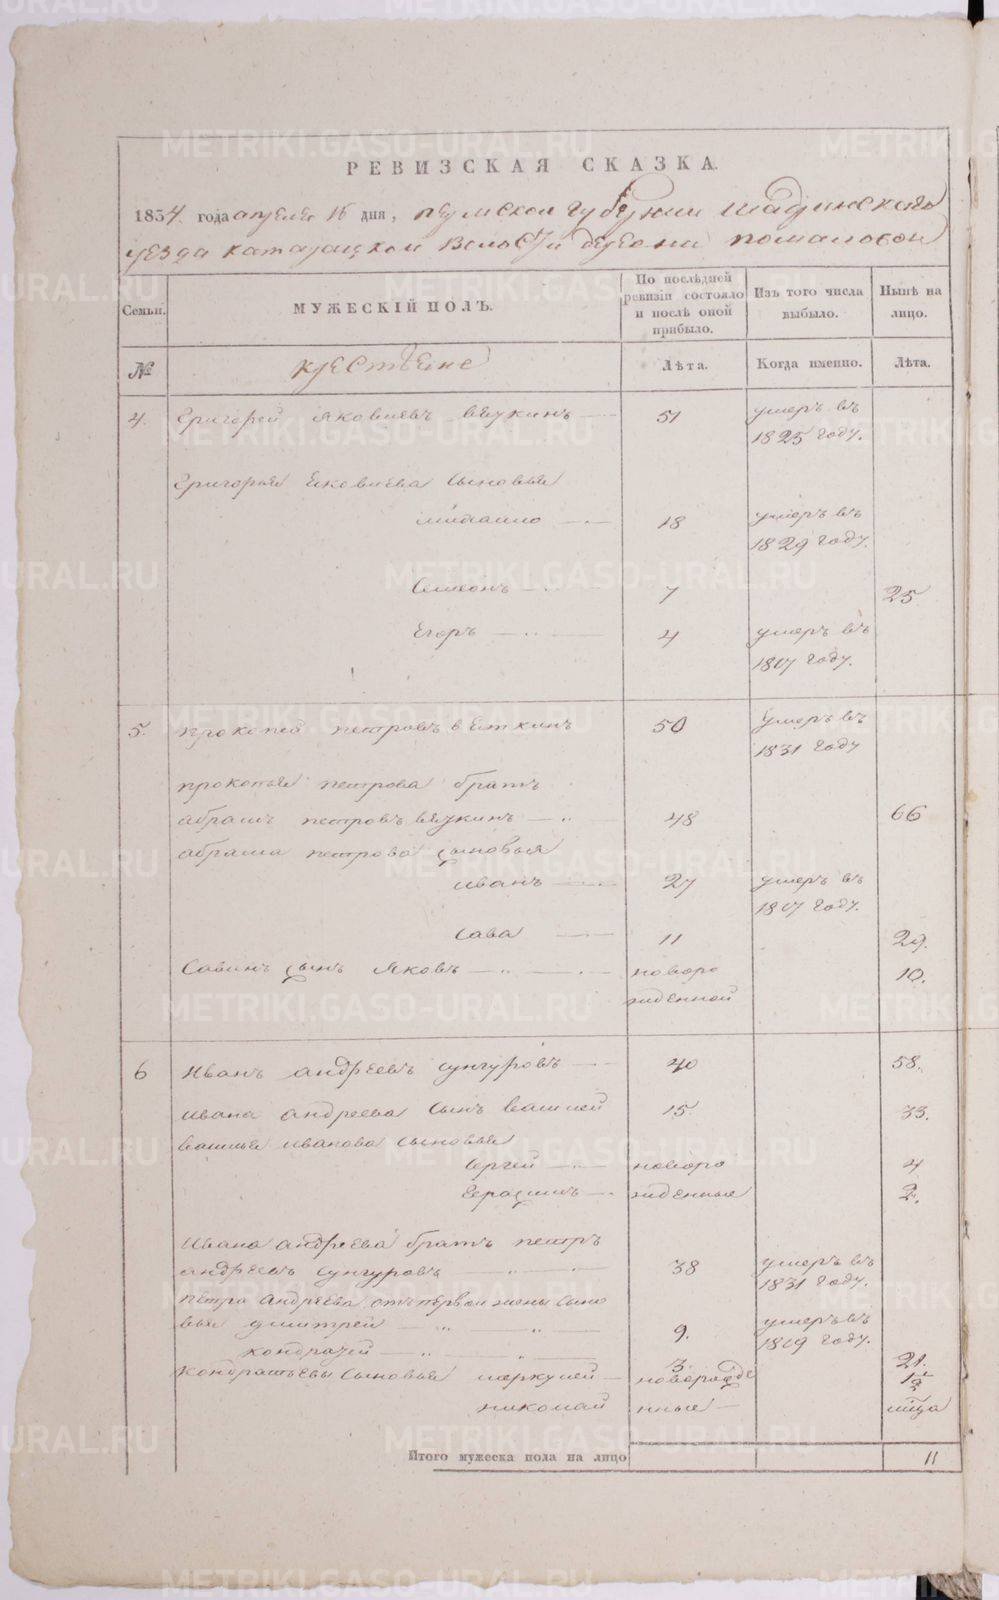 РЕВИЗСКАЯ СКАЗКА.
1834 года апреля 16 дня, пермской губернии шадринского
уезда катайской волости деревни
Семьи. МУЖЕСКІЙ ПОЛЪ. По послѣдней ревизіи состояло и послѣ оной прибыло. Изъ того числа выбыло. Нынѣ на лицо.
№ крестьяне Лѣта. Когда именно. Лѣта.
4. Григорей Яковлевъ вяткинъ 51 умеръ въ
1825 году.
Григорья Яковлева сыновья
михайло 18 умеръ въ
1829 году.
Семеонъ 7 25
Егоръ 4 умеръ въ
1817 году.
5. прокопей петровъ вяткинъ 50 умеръ въ
1831 году
прокопья петрова братъ
абрамъ петровъ вяткинъ 48 66
абрама петрова сыновья
иванъ 27 умеръ въ
1817 году.
Сава 11 29.
Савинъ сынъ Яковъ новоро 10.
жденной
6 Иванъ андреевъ сунгуровъ 40 58.
ивана андреева сынъ василей 15. 33.
василья иванова сыновья
сергей новоро 4
герасимъ жденные 2.
Ивана андреева братъ петръ
андреевъ сунгуровъ 38 умеръ въ
1831 году.
петра андреева отъ первой жены сыно
вья дмитрей 9. умеръ въ
1819 году.
кондратей 3. 21.
кондратьевы сыновья меркулей новорожде
николай нные
Итого мужеска пола на лицо 11
METRIKI.GASO-URAL.RU